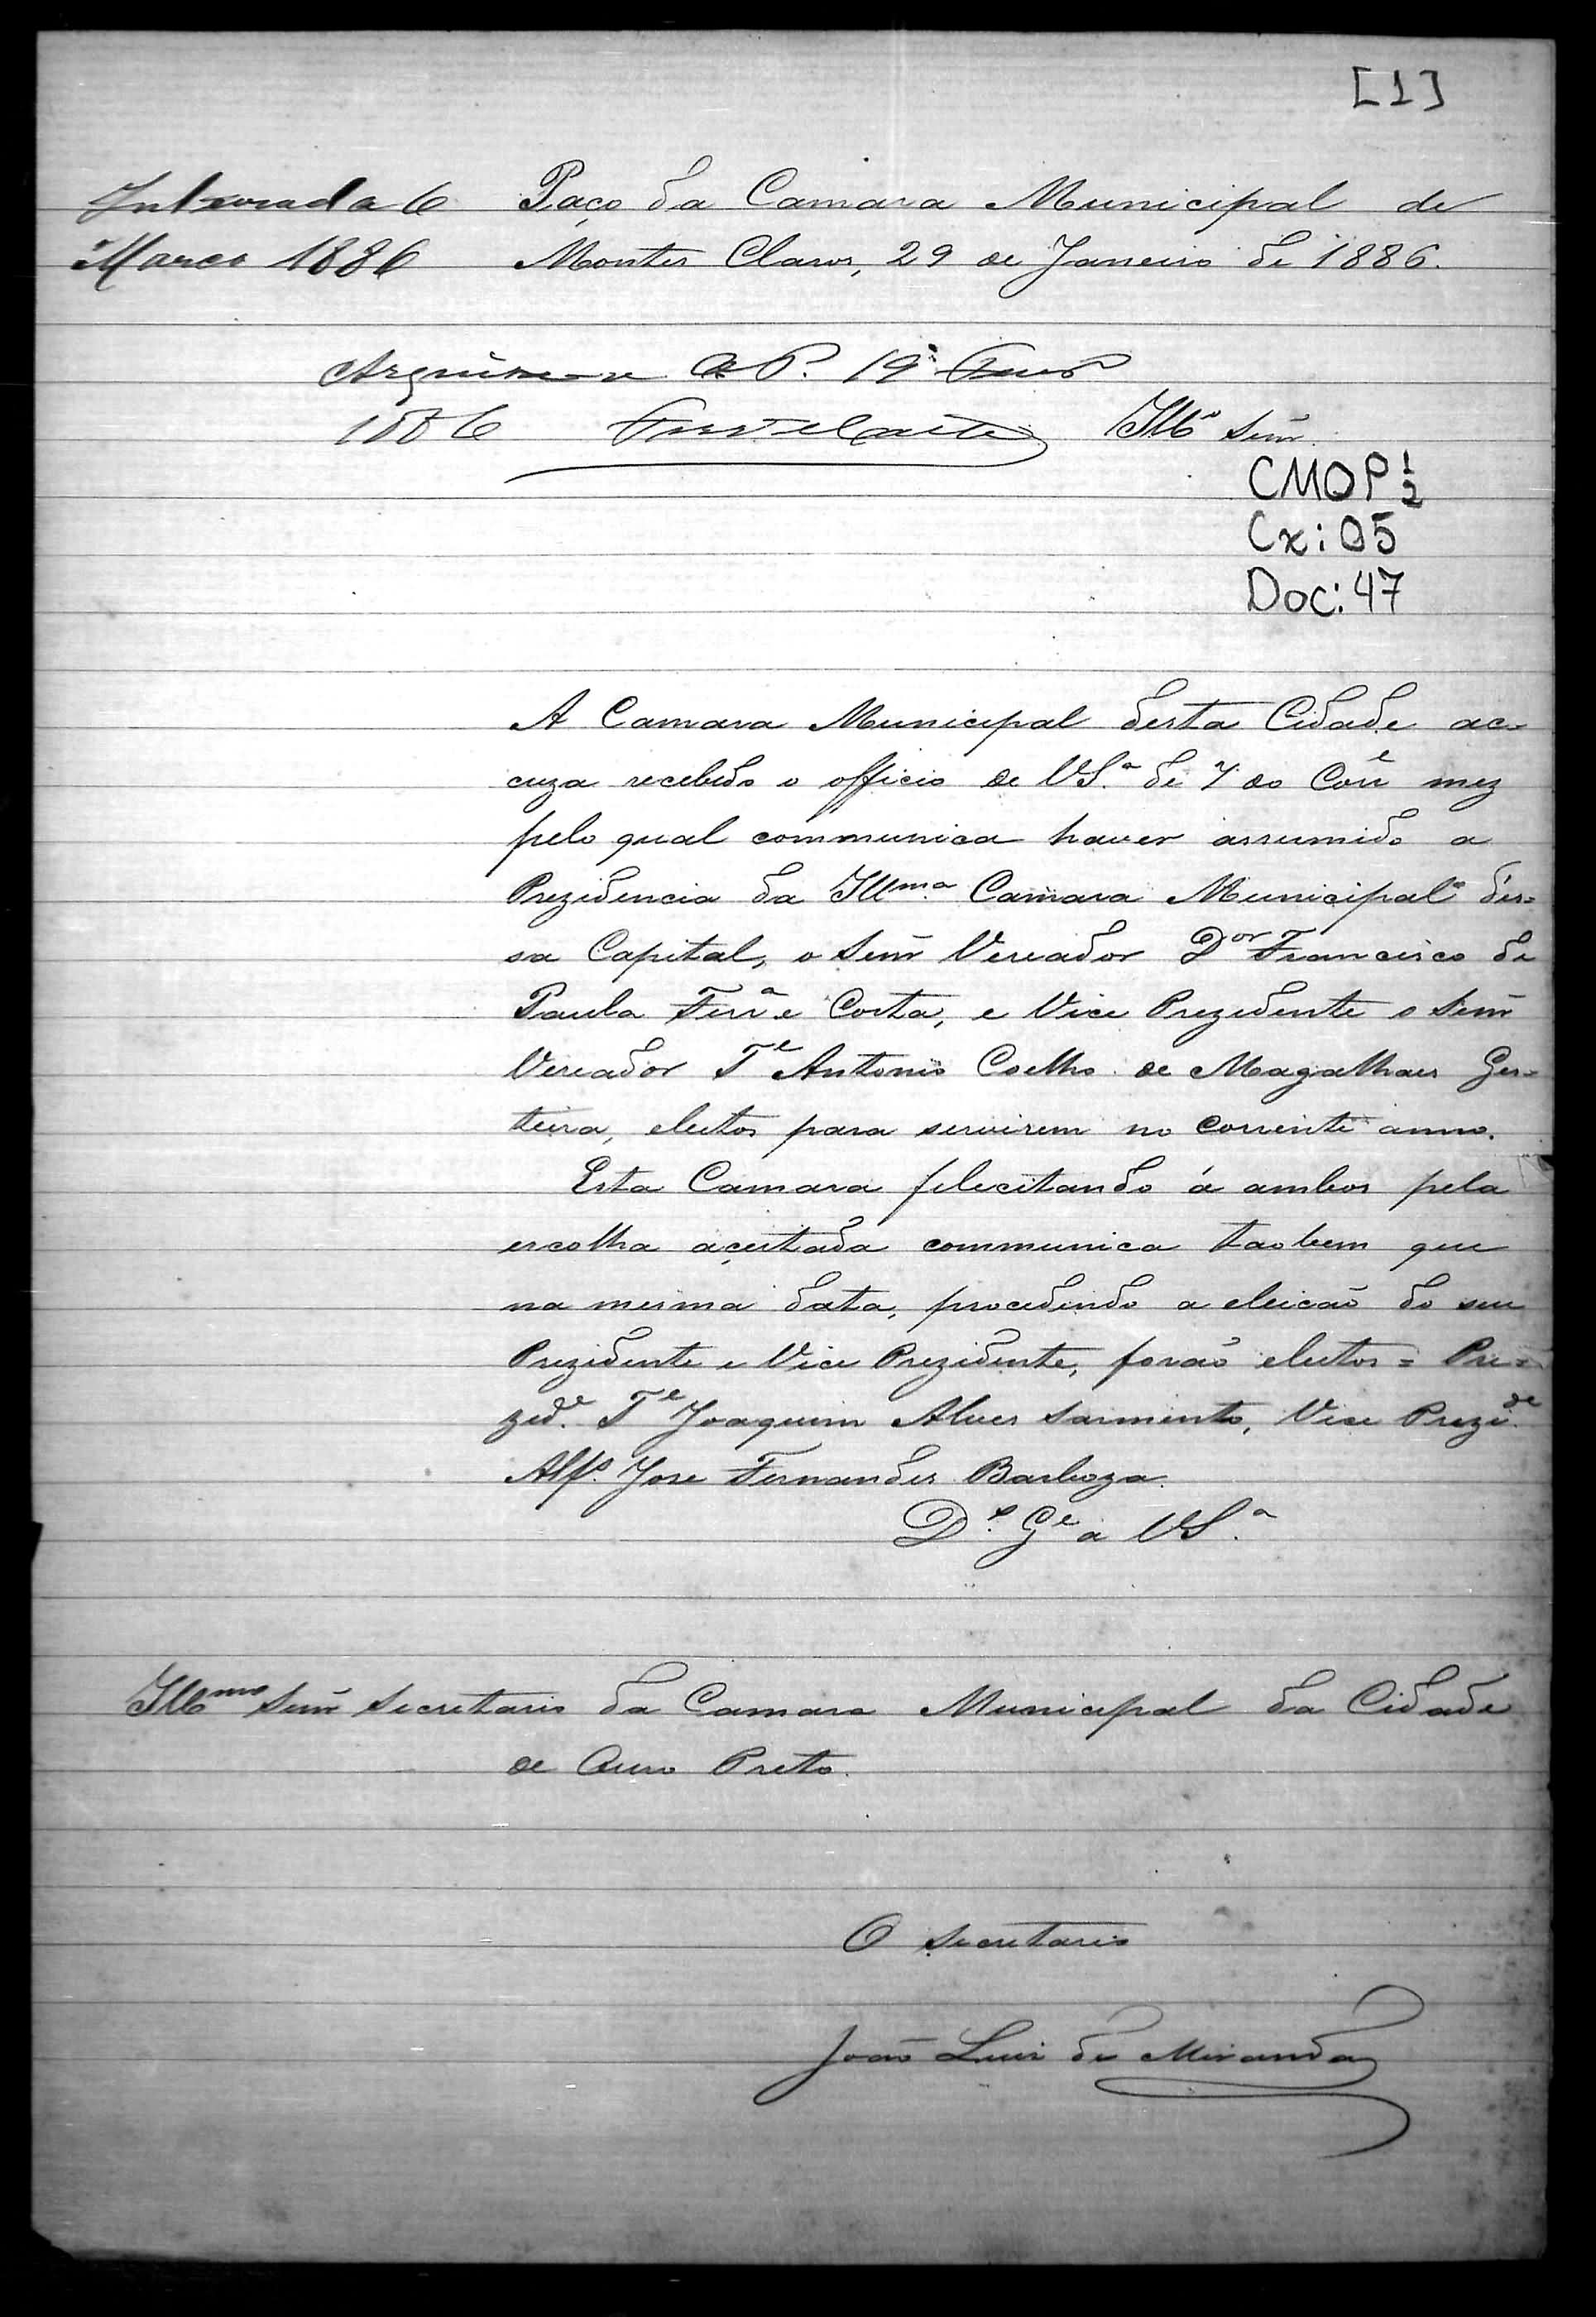 [1]
Inteirada 6
Março 1886
Paço da Camara Municipal de
Montes Claros, 29 de Janeiro de 1886.
Archive-se O P. 19
1886
Illº Senr
CMOP 1/2
Cx: 05
Doc: 47
A Camara Municipal desta Cidade ac=
cuza recebido o officio de VS.ª de 7 do Corrᵉ mez
pelo qual communica haver assumido a
Prezidencia da Illmª Camara Municipal des=
sa Capital, o Senr Vereador Dor Francisco de
Paula Ferrª e Costa, e Vice Prezidente o Senr
Vereador Tᵉ Antonio Coelho de Magalhaes Ges=
teira, eleitos para servirem no corrente anno.
Esta Camara felicitando á ambos pela
escolha acertada communica taobem que
na mesma data, procedendo a eleicão do seu
Prezidente e Vice Prezidente, forão eleitos = Pre=
zidᵉ Tᵉ Joaquim Alves Sarmento, Vice Prezidᵉ
Alfˢ Jose Fernandes Barboza.
Dˢ Gᵉ a VS.ª
Illmo Senr Secretario da Camara Municipal da Cidade
de Ouro Preto.
O Secretario
João Luis de Miranda